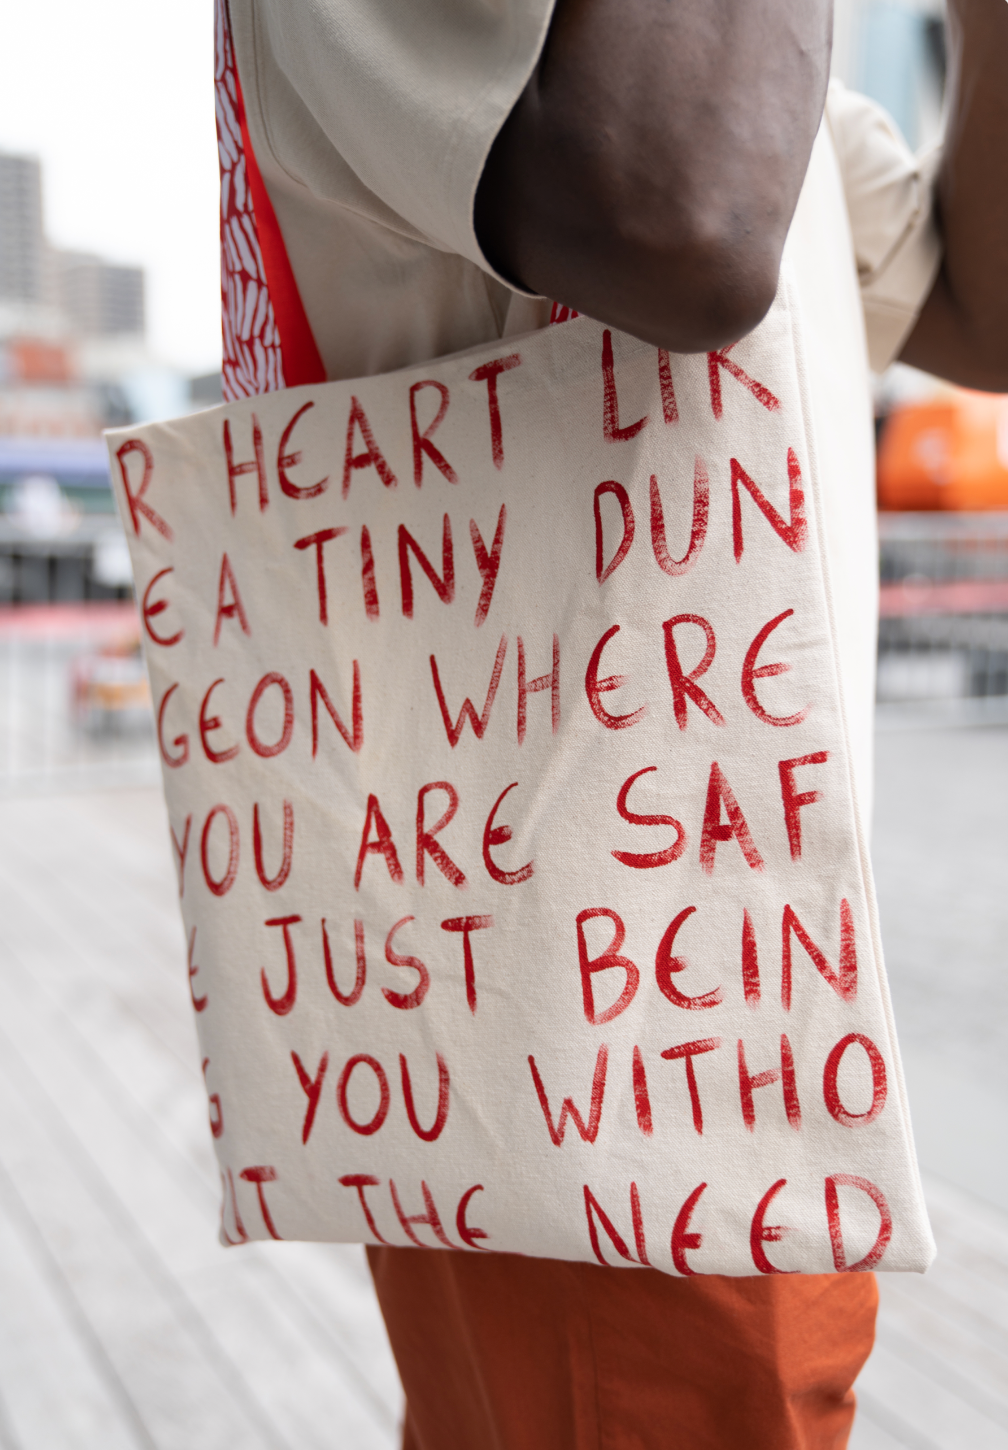 R HEART LIK
E A TINY DUN
GEON WHERE
YOU ARE SAF
E JUST BEIN
G YOU WITHO
UT THE NEED